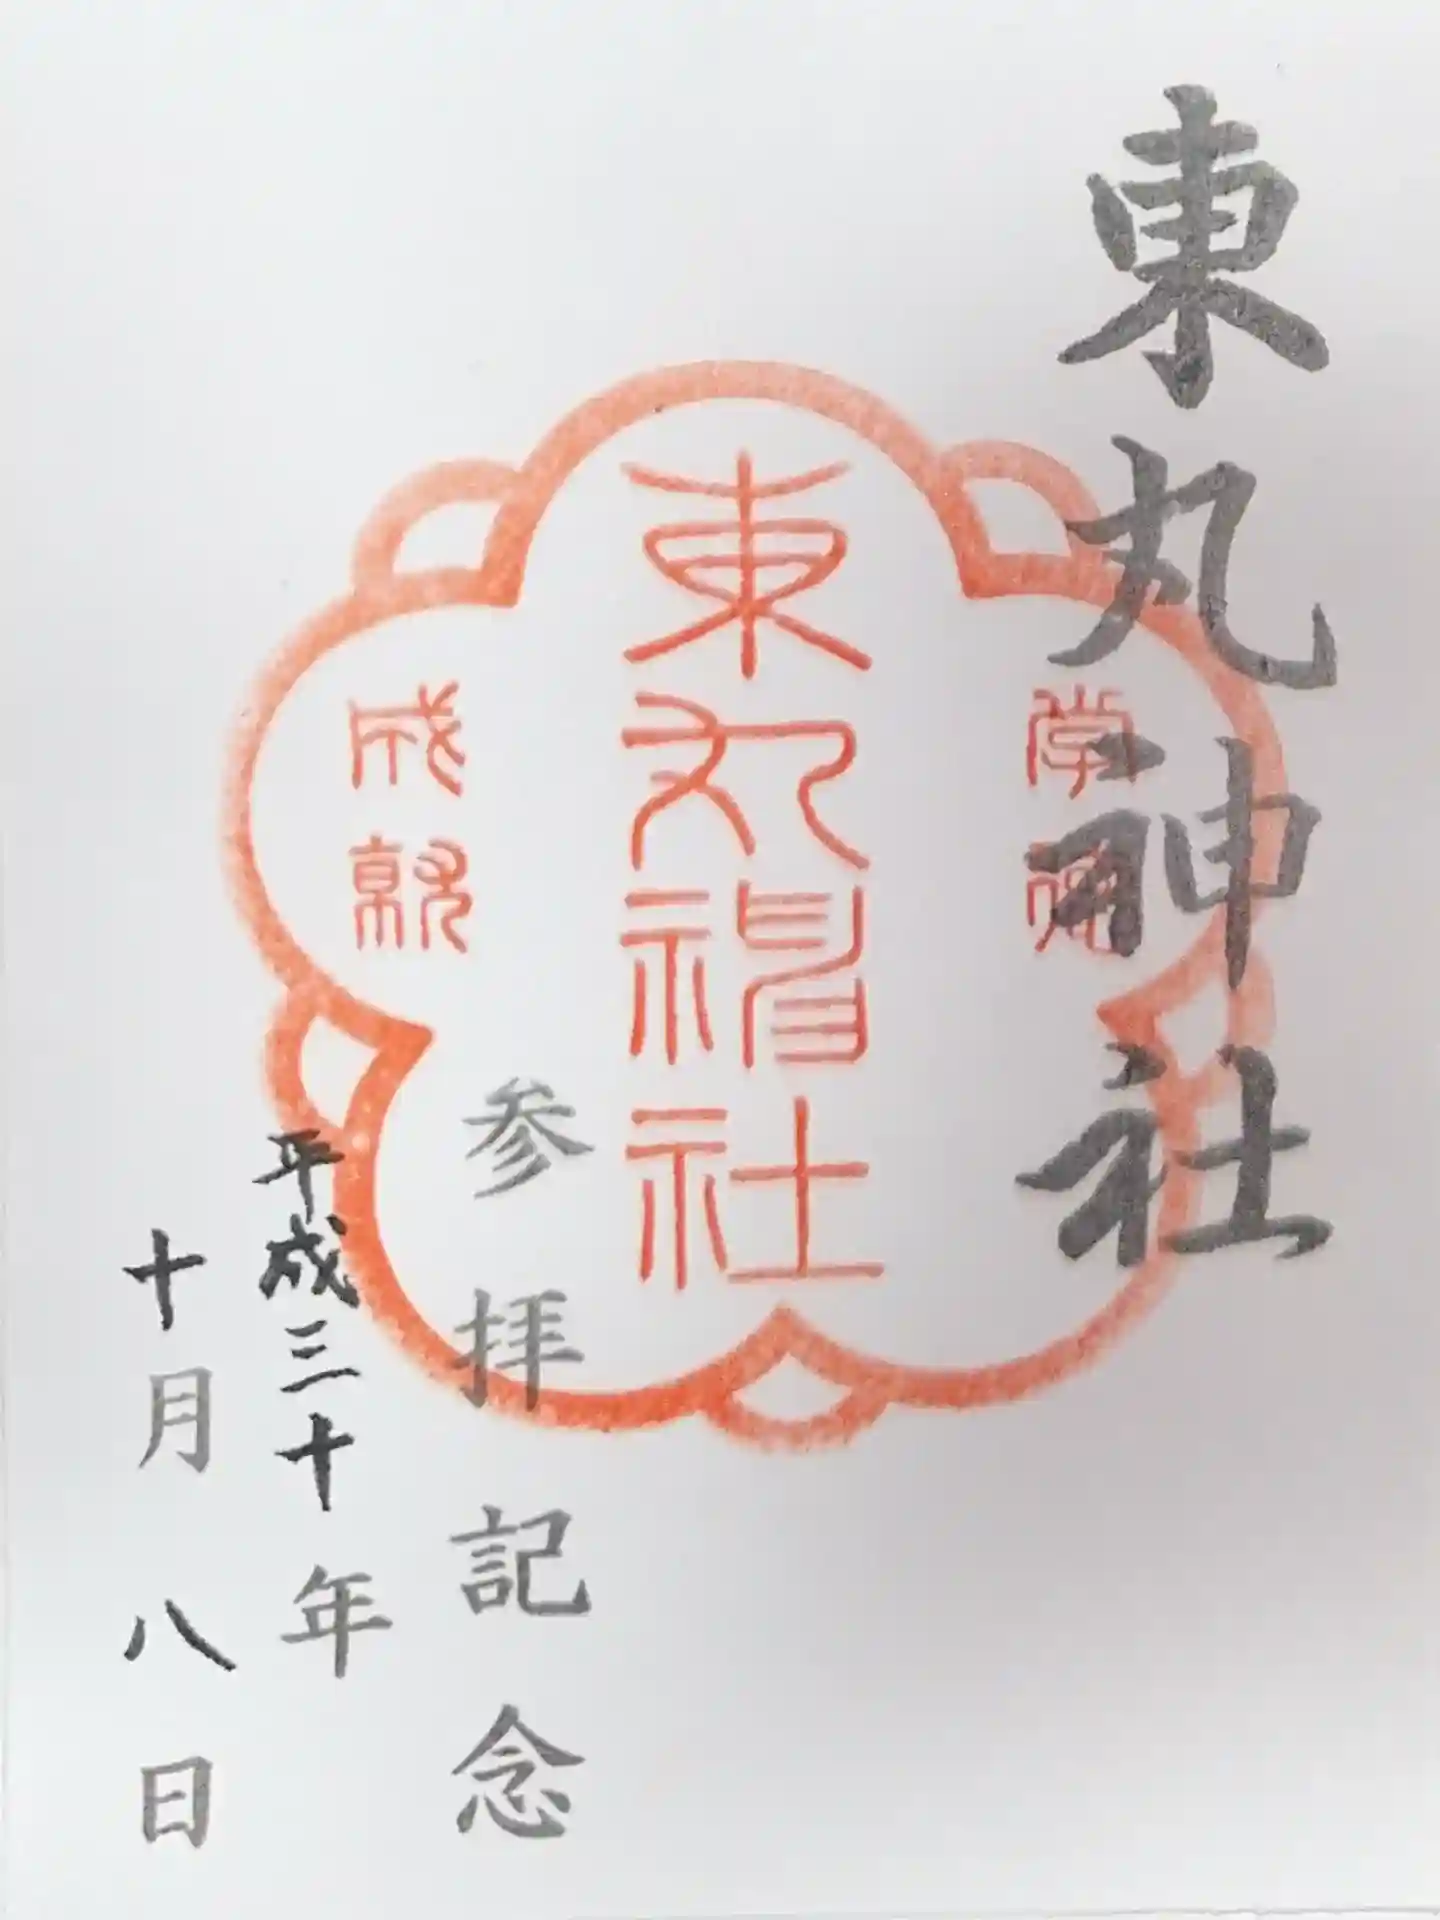 東丸神社
学
東丸神社
成就
参拝記念
平成三十年
十月八日